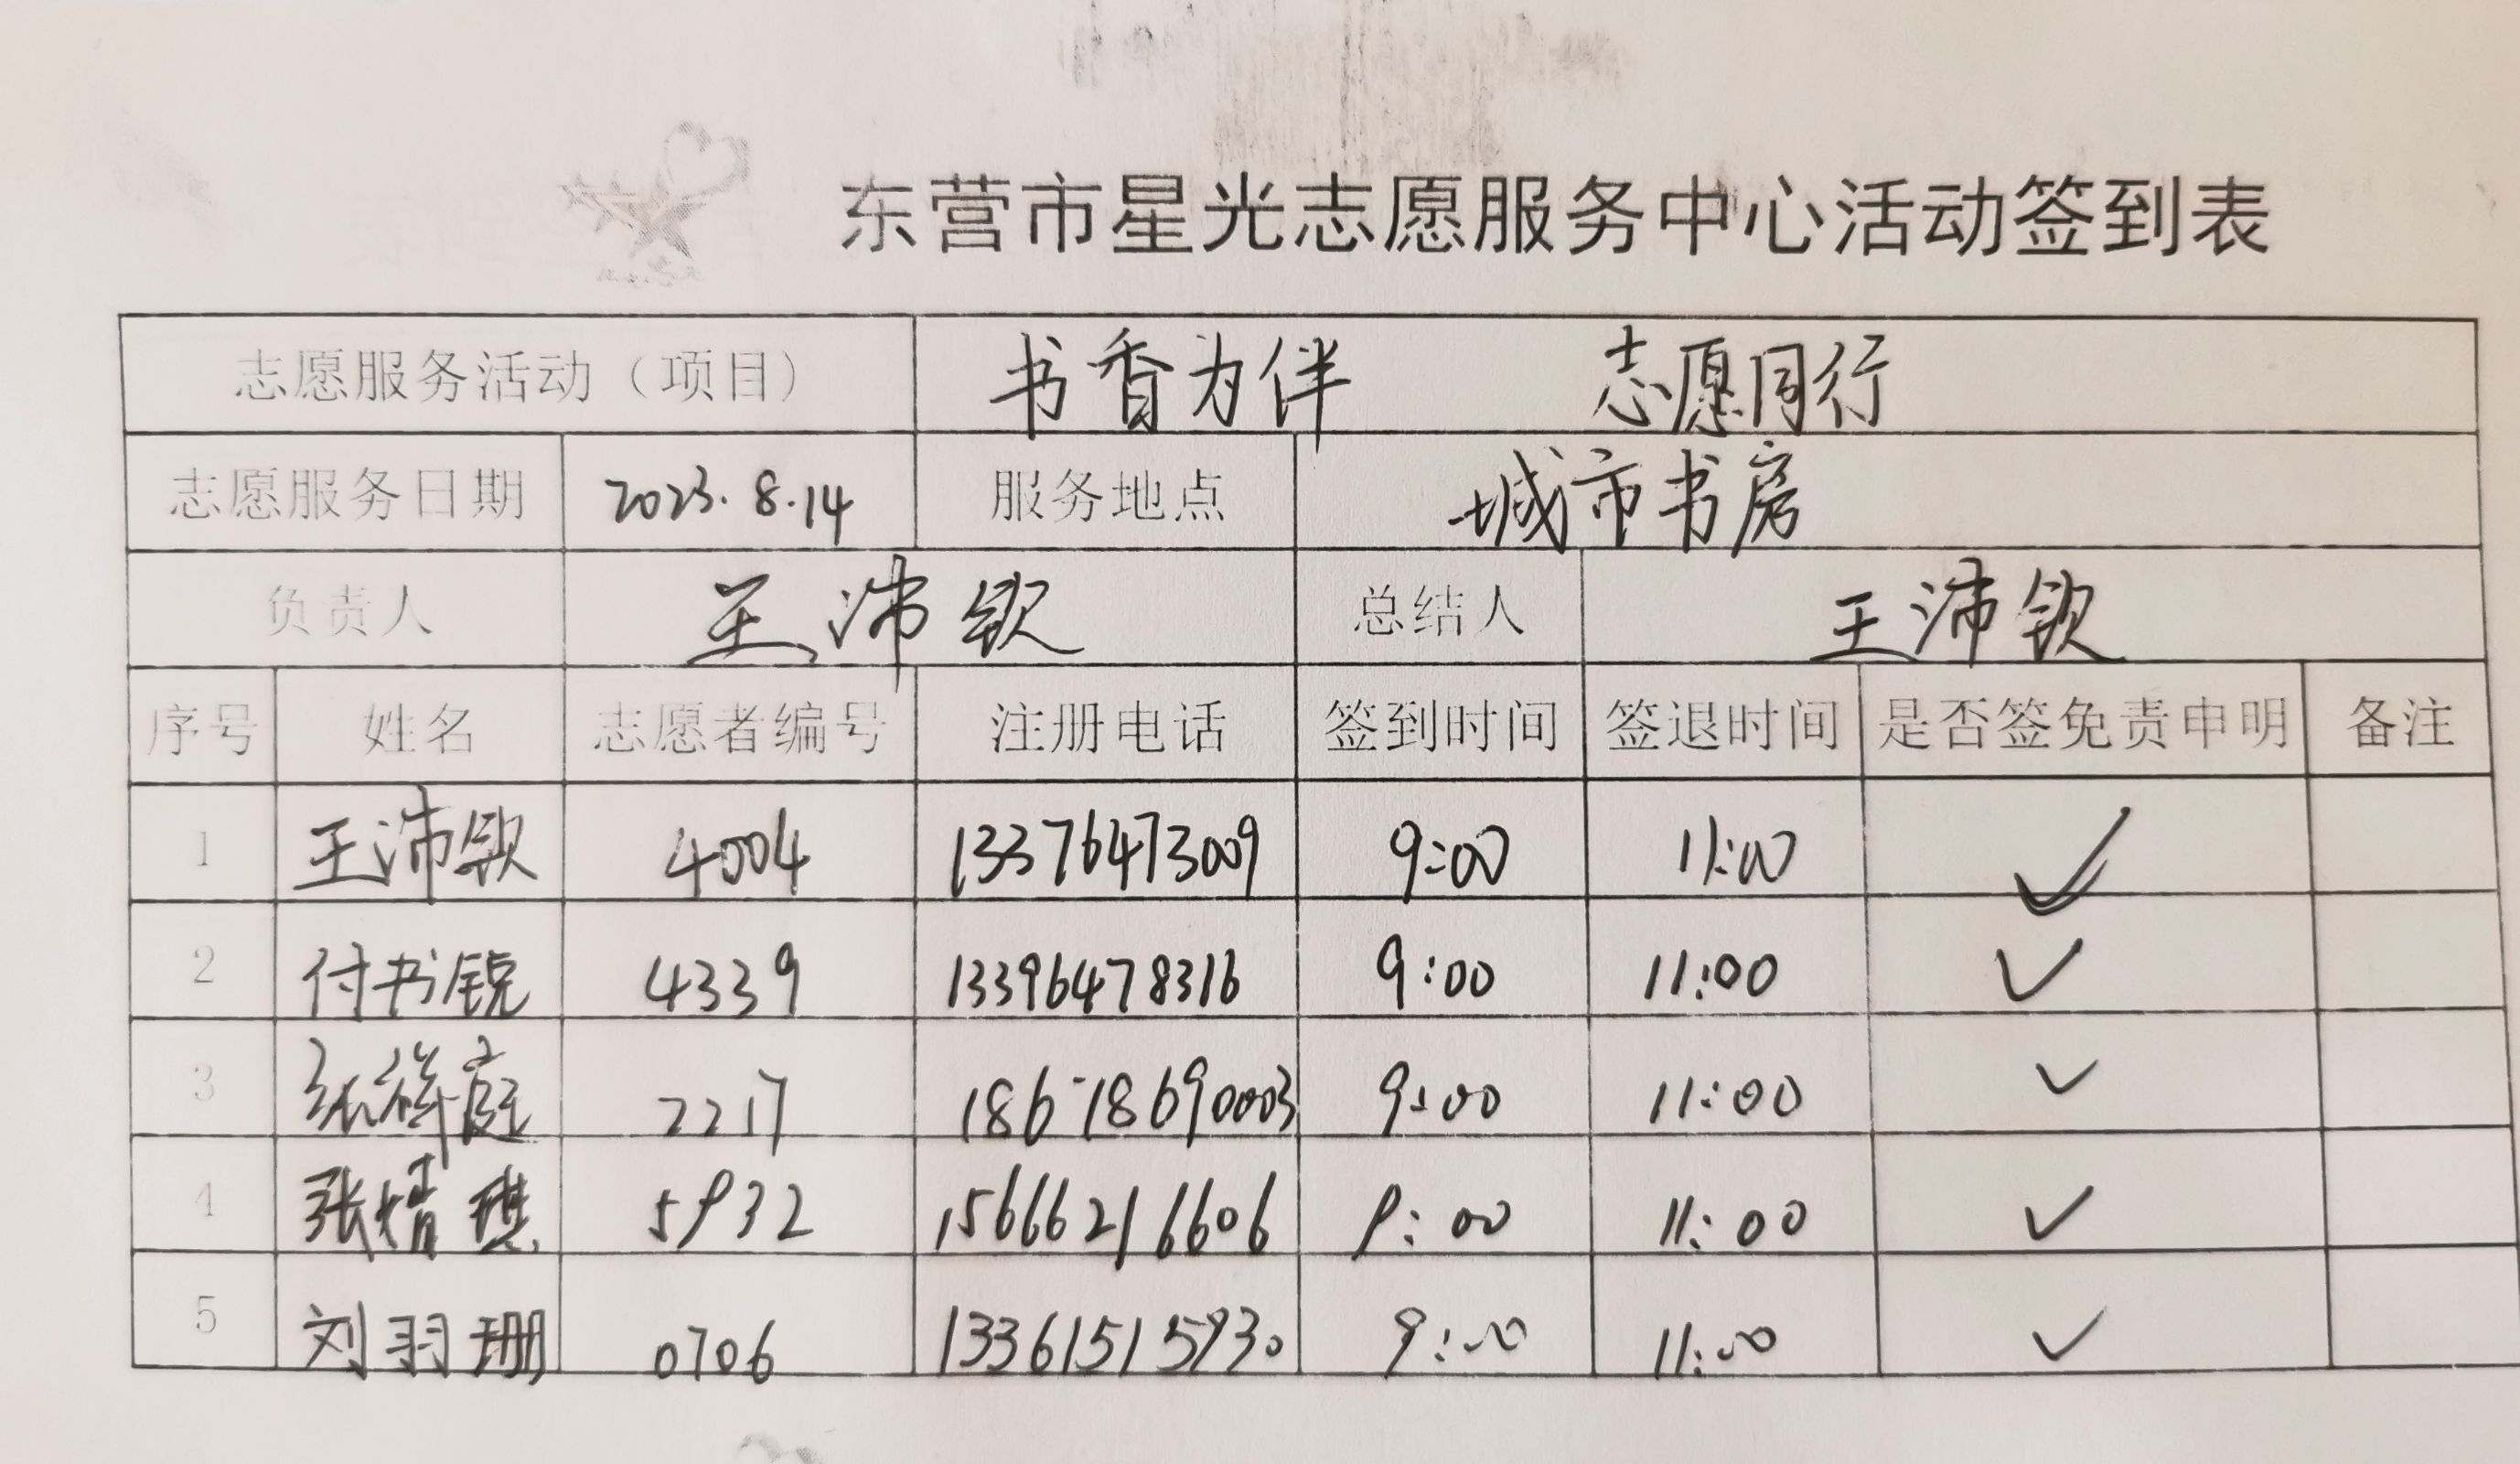 东营市星光志愿服务中心活动签到表
志愿服务活动（项目） 书香为伴 志愿同行
志愿服务日期 2023.8.14 服务地点 城市书房
负责人 王沛钦 总结人 王沛钦
序号 姓名 志愿者编号 注册电话 签到时间 签退时间 是否签免责申明 备注
1 王沛钦 4004 13376473009 9:00 11:00 ✓
2 付书锐 4339 13396478316 9:00 11:00 ✓
3 张祥庭 2217 18678690003 9:00 11:00 ✓
4 张婧琪 5932 15666216606 9:00 11:00 ✓
5 刘羽珊 0706 13361515930 9:00 11:00 ✓